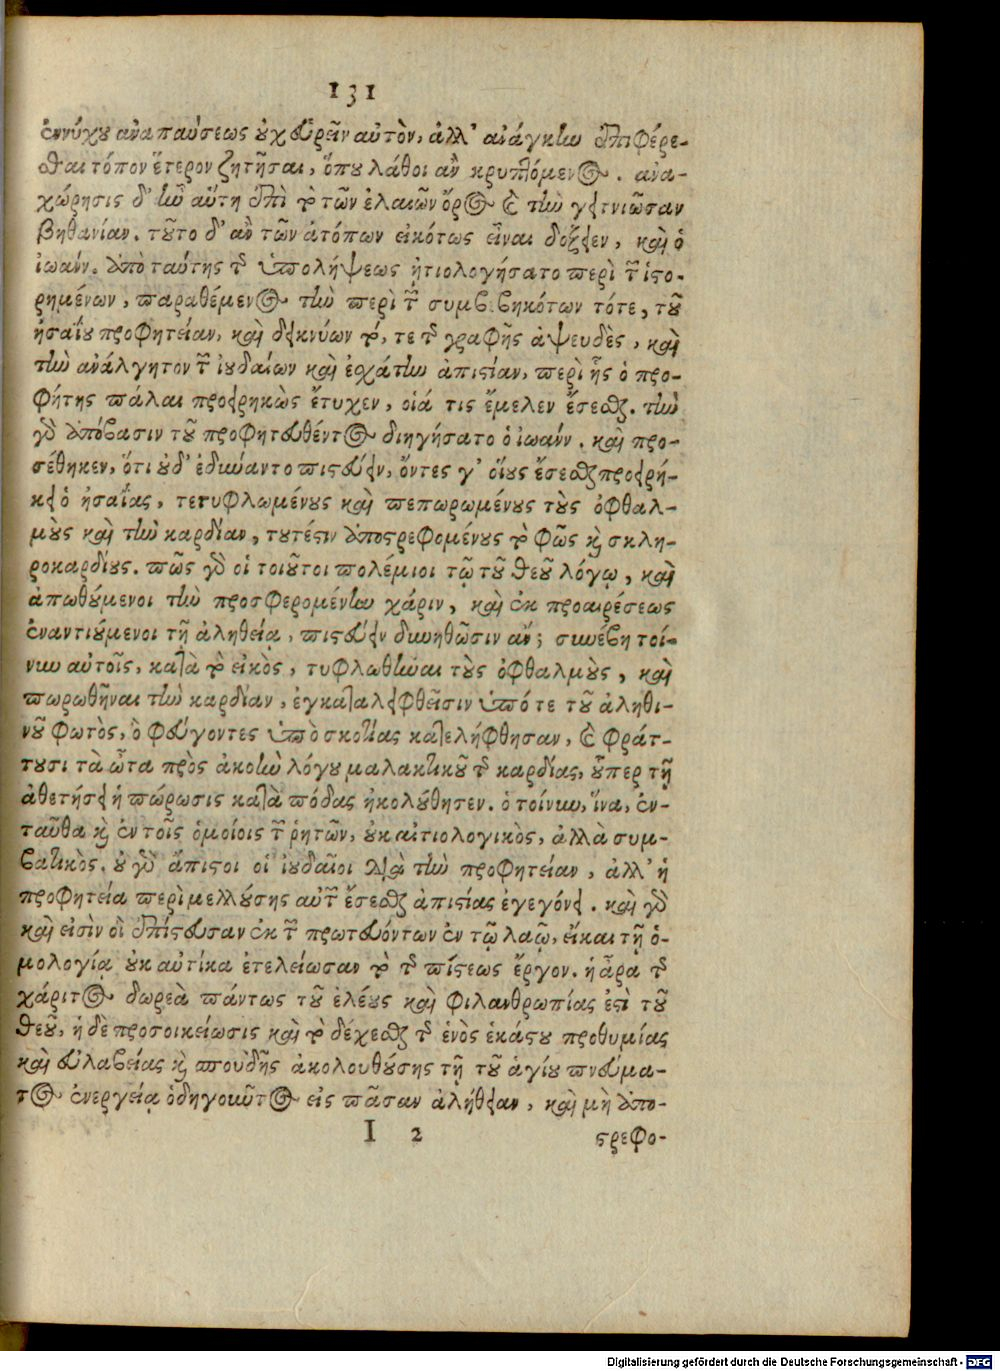 131
ἐννύχου ἀναπαύσεως οὐχ εὑρεῖν αὐτὸν, ἀλλ' ἀνάγκην ἐπιφέρε-
σθαι τόπον ἕτερον ζητῆσαι, ὅπου λάθοι ἂν κρυπτόμενος. ἀνα-
χώρησις δ' ἦν αὕτη ἐπὶ τὸ τῶν ἐλαιῶν ὄρος καὶ τὴν γειτνιῶσαν
βηθανίαν. τοῦτο δ' ἂν τῶν ἀτόπων εἰκότως εἶναι δόξειεν, καὶ ὁ
ἰωάνν. ἀπὸ ταύτης τῆς ὑπολήψεως ᾐτιολογήσατο περὶ τῶν ἱστο-
ρημένων, παραθέμενος τὴν περὶ τῶν συμβεβηκότων τότε, τοῦ
ἡσαΐου προφητείαν, καὶ δεικνύων τό, τε τῆς γραφῆς ἀψευδὲς, καὶ
τὴν ἀνάλγητον τῶν ἰουδαίων καὶ ἐσχάτην ἀπιστίαν, περὶ ἧς ὁ προ-
φήτης πάλαι προειρηκὼς ἔτυχεν, οἵα τις ἔμελεν ἔσεσθαι. τὴν
γὰρ ἀπόβασιν τοῦ προφητευθέντος διηγήσατο ὁ ἰωάνν. καὶ προ-
σέθηκεν, ὅτι οὐδ' ἐδύναντο πιστεύειν, ὄντες γ' οἵους ἔσεσθαι προειρή-
κει ὁ ἡσαΐας, τετυφλωμένους καὶ πεπωρωμένους τοὺς ὀφθαλ-
μοὺς καὶ τὴν καρδίαν, τουτέστιν ἀποστρεφομένους τὸ φῶς καὶ σκλη-
ροκαρδίους. πῶς γὰρ οἱ τοιοῦτοι πολέμιοι τῷ τοῦ θεοῦ λόγῳ, καὶ
ἀπωθούμενοι τὴν προσφερομένην χάριν, καὶ ἐκ προαιρέσεως
ἐναντιούμενοι τῇ ἀληθείᾳ, πιστεύειν δυνηθῶσιν ἄν; συνέβη τοί-
νυν αὐτοῖς, κατὰ τὸ εἰκὸς, τυφλωθῆναι τοὺς ὀφθαλμοὺς, καὶ
πωρωθῆναι τὴν καρδίαν, ἐγκαταλειφθεῖσιν ὑπό τε τοῦ ἀληθι-
νοῦ φωτὸς, ὃ φεύγοντες ὑπὸ σκοτίας κατελήφθησαν, καὶ φράτ-
τουσι τὰ ὦτα πρὸς ἀκοὴν λόγου μαλακτικοῦ τῆς καρδίας, οὗπερ τῇ
ἀθετήσει ἡ πώρωσις κατὰ πόδας ἠκολούθησεν. ὁ τοίνυν, ἵνα, ἐν-
ταῦθα καὶ ἐν τοῖς ὁμοίοις τῶν ῥητῶν, οὐκ αἰτιολογικὸς, ἀλλὰ συμ-
βατικὸς. οὐ γὰρ ἄπιστοι οἱ ἰουδαῖοι διὰ τὴν προφητείαν, ἀλλ' ἡ
προφητεία περὶ μελλούσης αὐτῶν ἔσεσθαι ἀπιστίας ἐγεγόνει. καὶ γὰρ
καὶ εἰσὶν οἳ ἐπίστευσαν ἐκ τῶν πρωτευόντων ἐν τῷ λαῷ, εἰ καὶ τῇ ὁ-
μολογίᾳ οὐκ αὐτίκα ἐτελείωσαν τὸ τῆς πίστεως ἔργον. ἡ ἄρα τῆς
χάριτος δωρεὰ πάντως τοῦ ἐλέους καὶ φιλανθρωπίας ἐστὶ τοῦ
θεοῦ, ἡ δὲ προσοικείωσις καὶ τὸ δέχεσθαι τῆς ἑνὸς ἑκάστου προθυμίας
καὶ εὐλαβείας καὶ σπουδῆς ἀκολουθούσης τῇ τοῦ ἁγίου πνεύμα-
τος ἐνεργείᾳ ὁδηγοῦντος εἰς πᾶσαν ἀλήθειαν, καὶ μὴ ἀπο-
I 2 στρεφο-
Digitalisierung gefördert durch die Deutsche Forschungsgemeinschaft - DFG